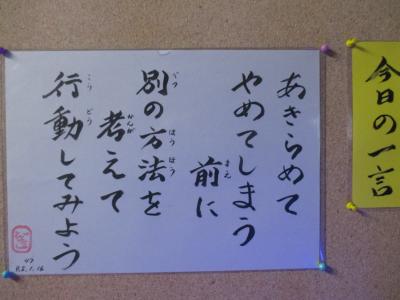 今日の一言
あきらめて
やめてしまう
前に
まえ
別の方法を
べつ
ほうほう
考えて
かんが
行動してみよう
こうどう
47
R2.1.16